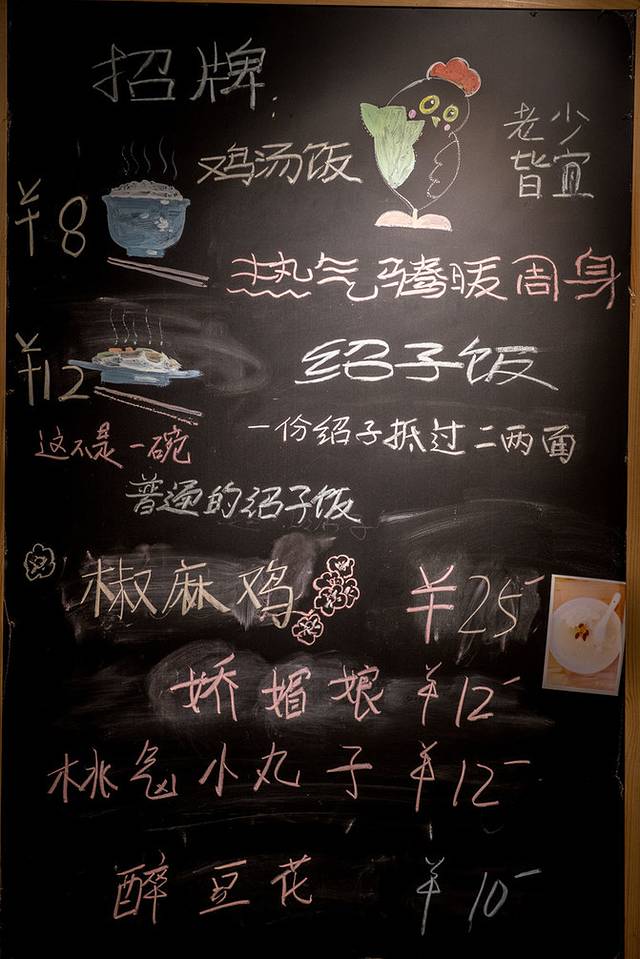 招牌
鸡汤饭
老少
皆宜
¥8
热气腾暖周身
¥12
绍子饭
一份绍子抵过二两面
这不是一碗
普通的绍子饭
椒麻鸡 ¥25
娇媚娘 ¥12
桃气小丸子 ¥12
醉豆花 ¥10